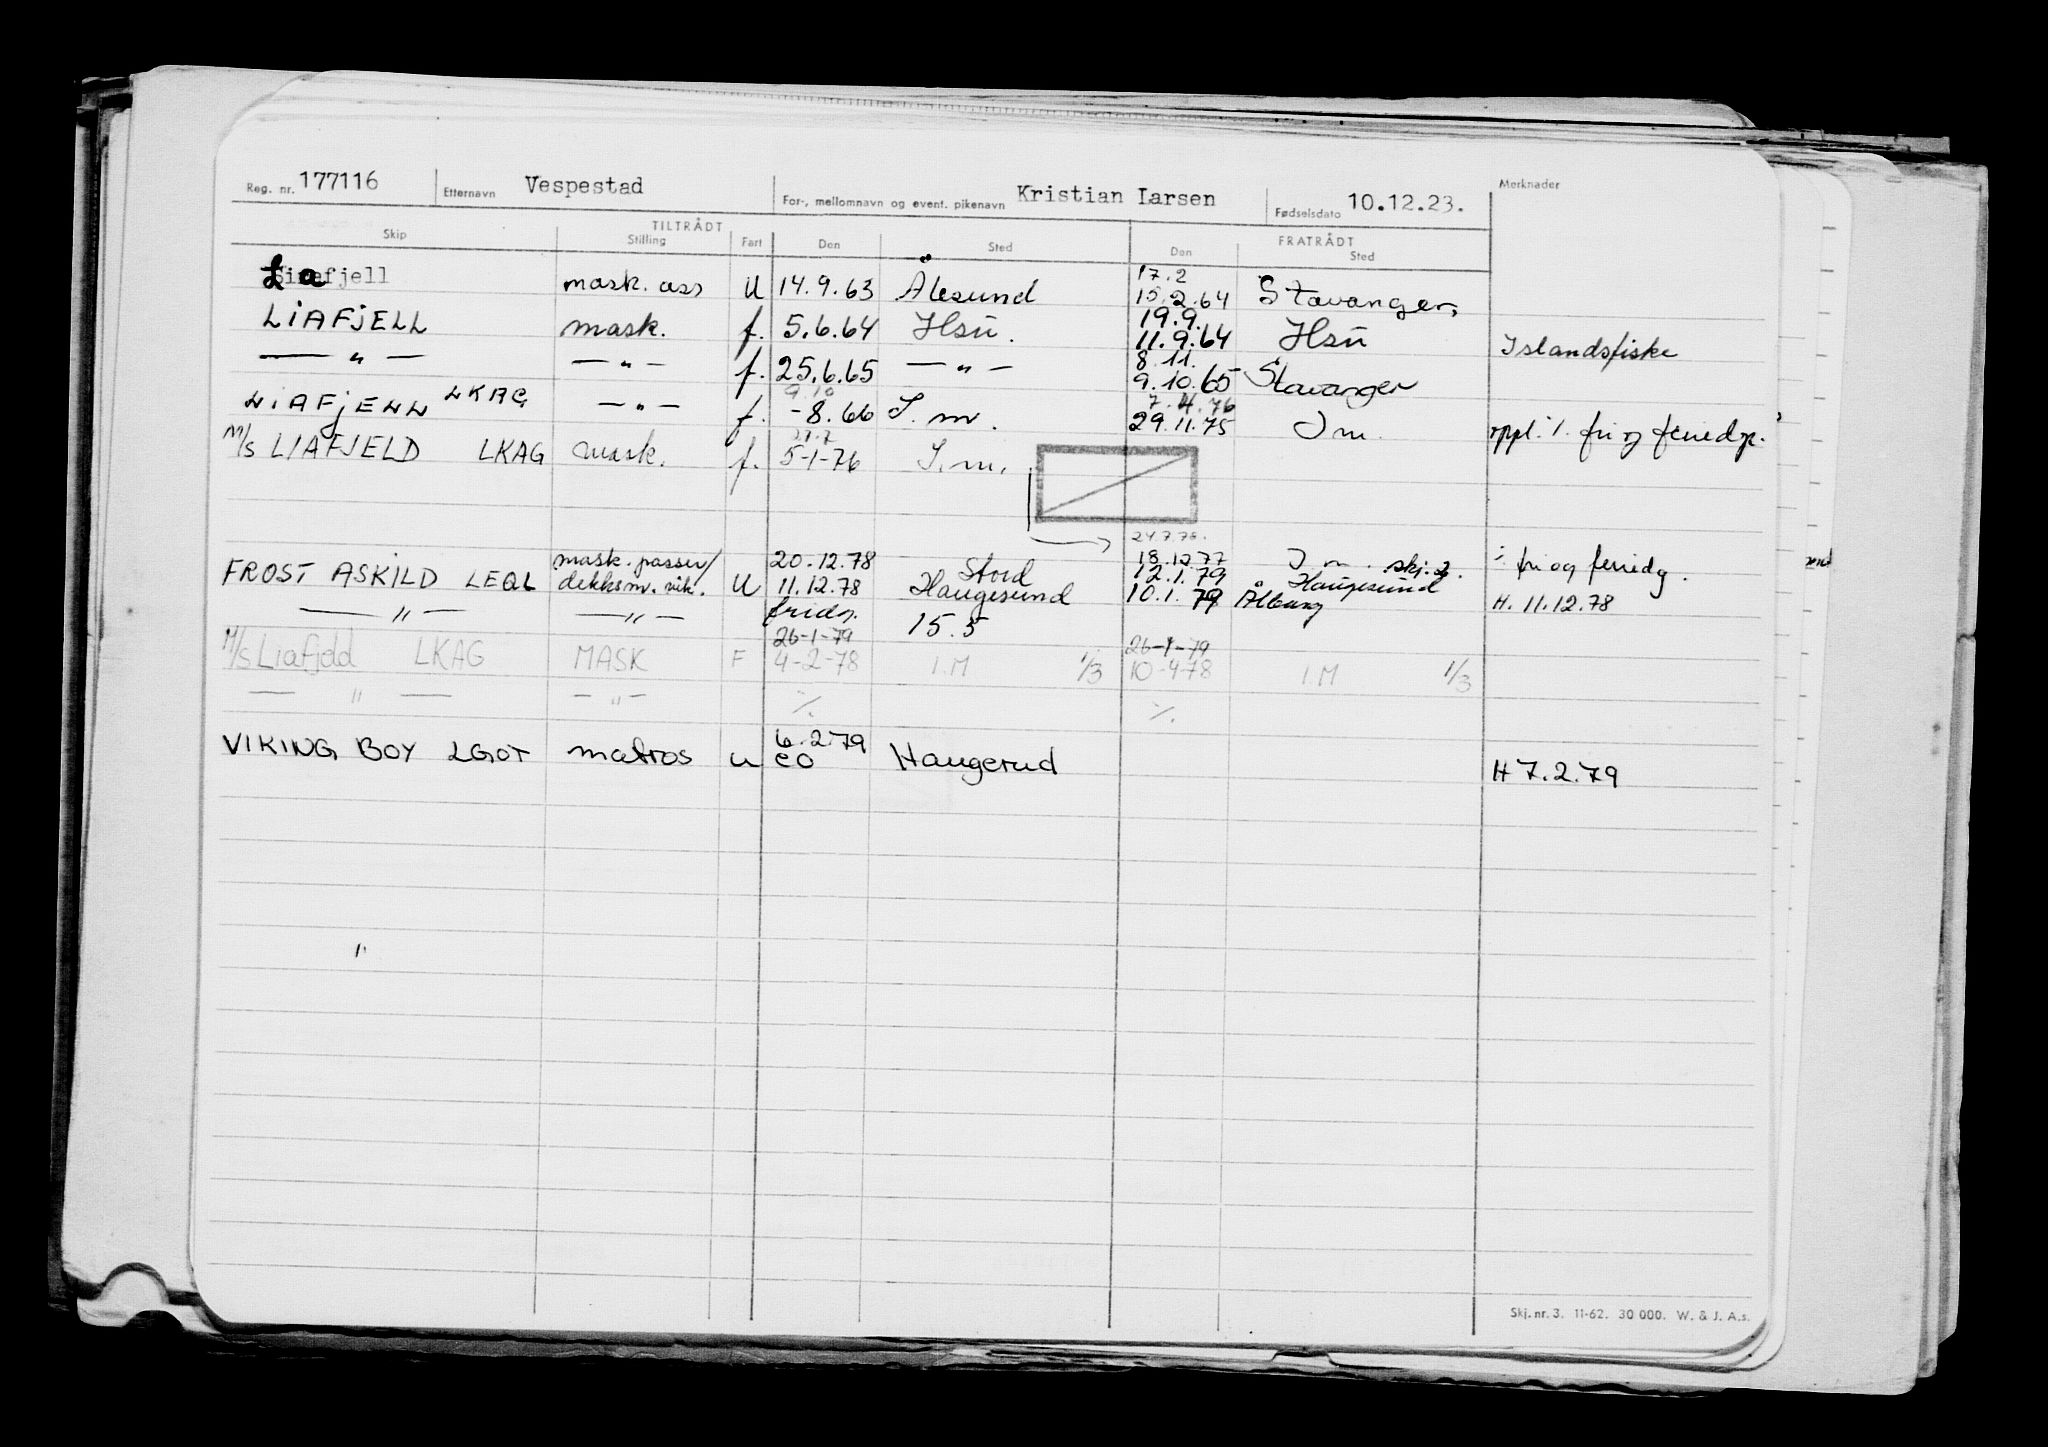 Reg. nr. 177116 Etternavn Vespestad For-, mellomnavn og event. pikenavn Kristian Larsen Fødselsdato 10.12.23. Merknader
TILTRÅDT FRATRÅDT
Skip Stilling Fart Den Sted Den Sted
17.2
Liafjell mask. ass U 14.9.63 Ålesund 15.2.64 Stavanger,
19.9.
LIAFJELL mask. f. 5.6.64 Hsü. 11.9.64 Hsü Islandsfiske
8.11.
— " — — " — f. 25.6.65 — " — 9.10.65 Stavanger
9.10 7.4.76
LIAFJELL LKAG — " — f. -8.66 I.m. 29.11.75 I m. oppl. i. fri og feriedg.
27.7
M/S LIAFJELD LKAG mask. f. 5-1-76 I.m.
24.7.78.
mask. passer/ 20.12.78 Stord 18.12.77 I m. skj. 2. i fri og feriedg.
FROST ASKILD LEQL dekksm. vik. U 11.12.78 Haugesund 12.1.79 Haugesund
— " — — " — fridg. 15.5 10.1.79 Ålborg H. 11.12.78
26-1-79 26-1-79
M/S Liafjeld LKAG MASK F 4-2-78 I.M 1/3 10-4-78 I.M 1/3
— " — — " — ·/. ·/.
6.2.79
VIKING BOY LGOT matros u eo Haugerud H 7.2.79
"
Skj. nr. 3. 11-62. 30 000. W. & J. A.s.